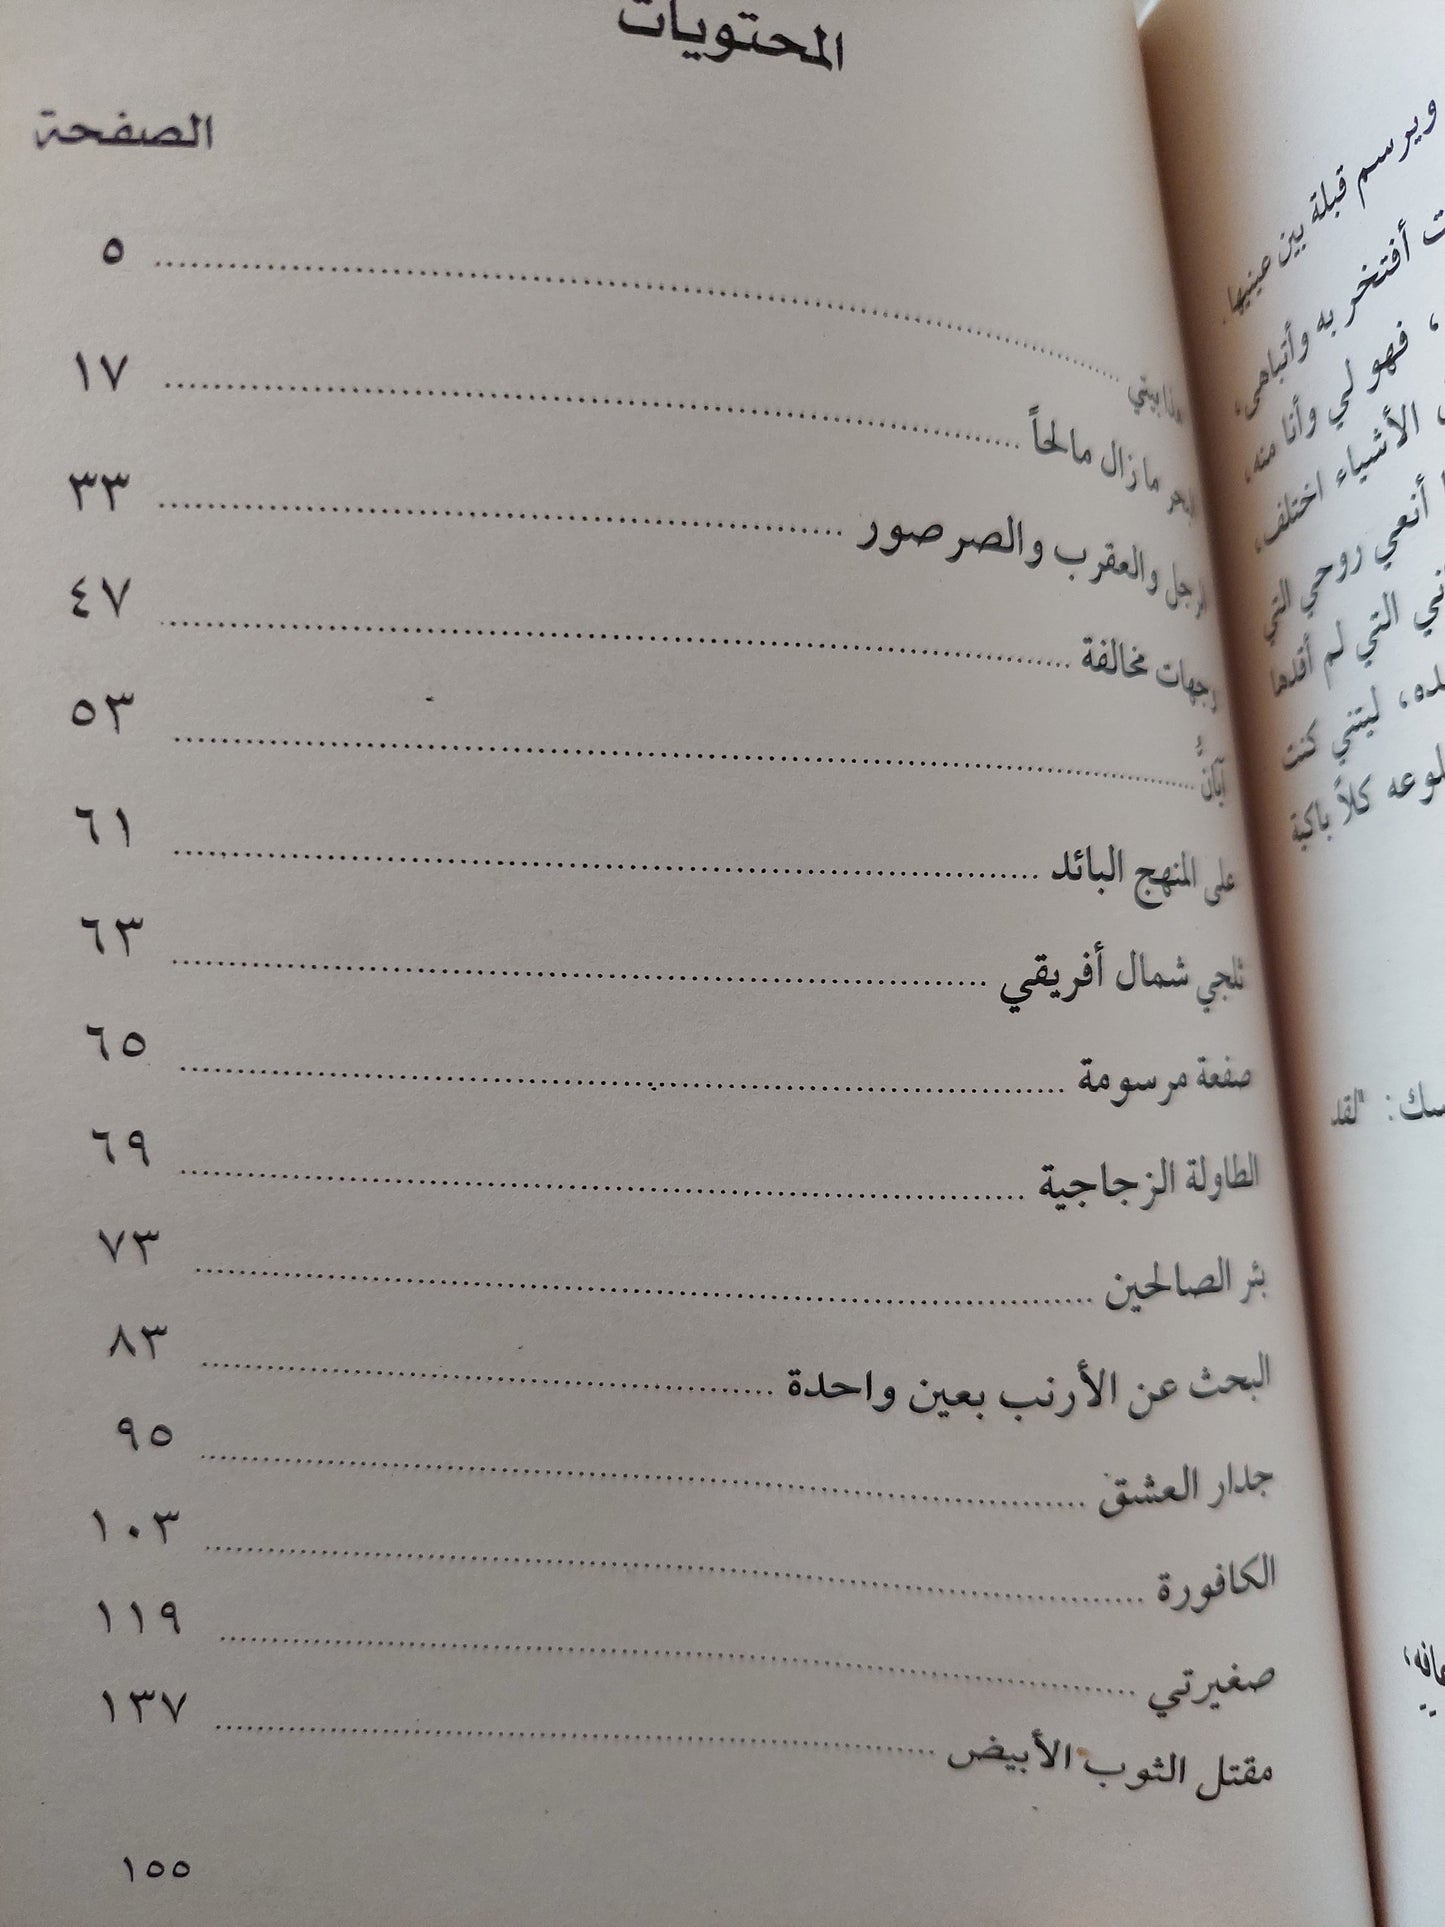 المحتويات
الصفحة
هذا بيتي ٥
البحر ما زال مالحاً ١٧
الرجل والعقرب والصرصور ٣٣
وجهات مخالفة ٤٧
٥٣
على المنهج البائد ٦١
ثلجي شمال أفريقي ٦٣
صفعة مرسومة ٦٥
الطاولة الزجاجية ٦٩
بئر الصالحين ٧٣
البحث عن الأرنب بعين واحدة ٨٣
جدار العشق ٩٥
الكافورة ١٠٣
صغيرتي ١١٩
مقتل الثوب الأبيض ١٣٧
١٥٥
ويرسم قبلة بين عينيها.
أفتخر به وأتباهى،
، فهو لي وأنا منه،
الأشياء اختلف،
أنعي روحي التي
التي لم أفدها
ليتني كنت
كلاً باكية
: "لقد